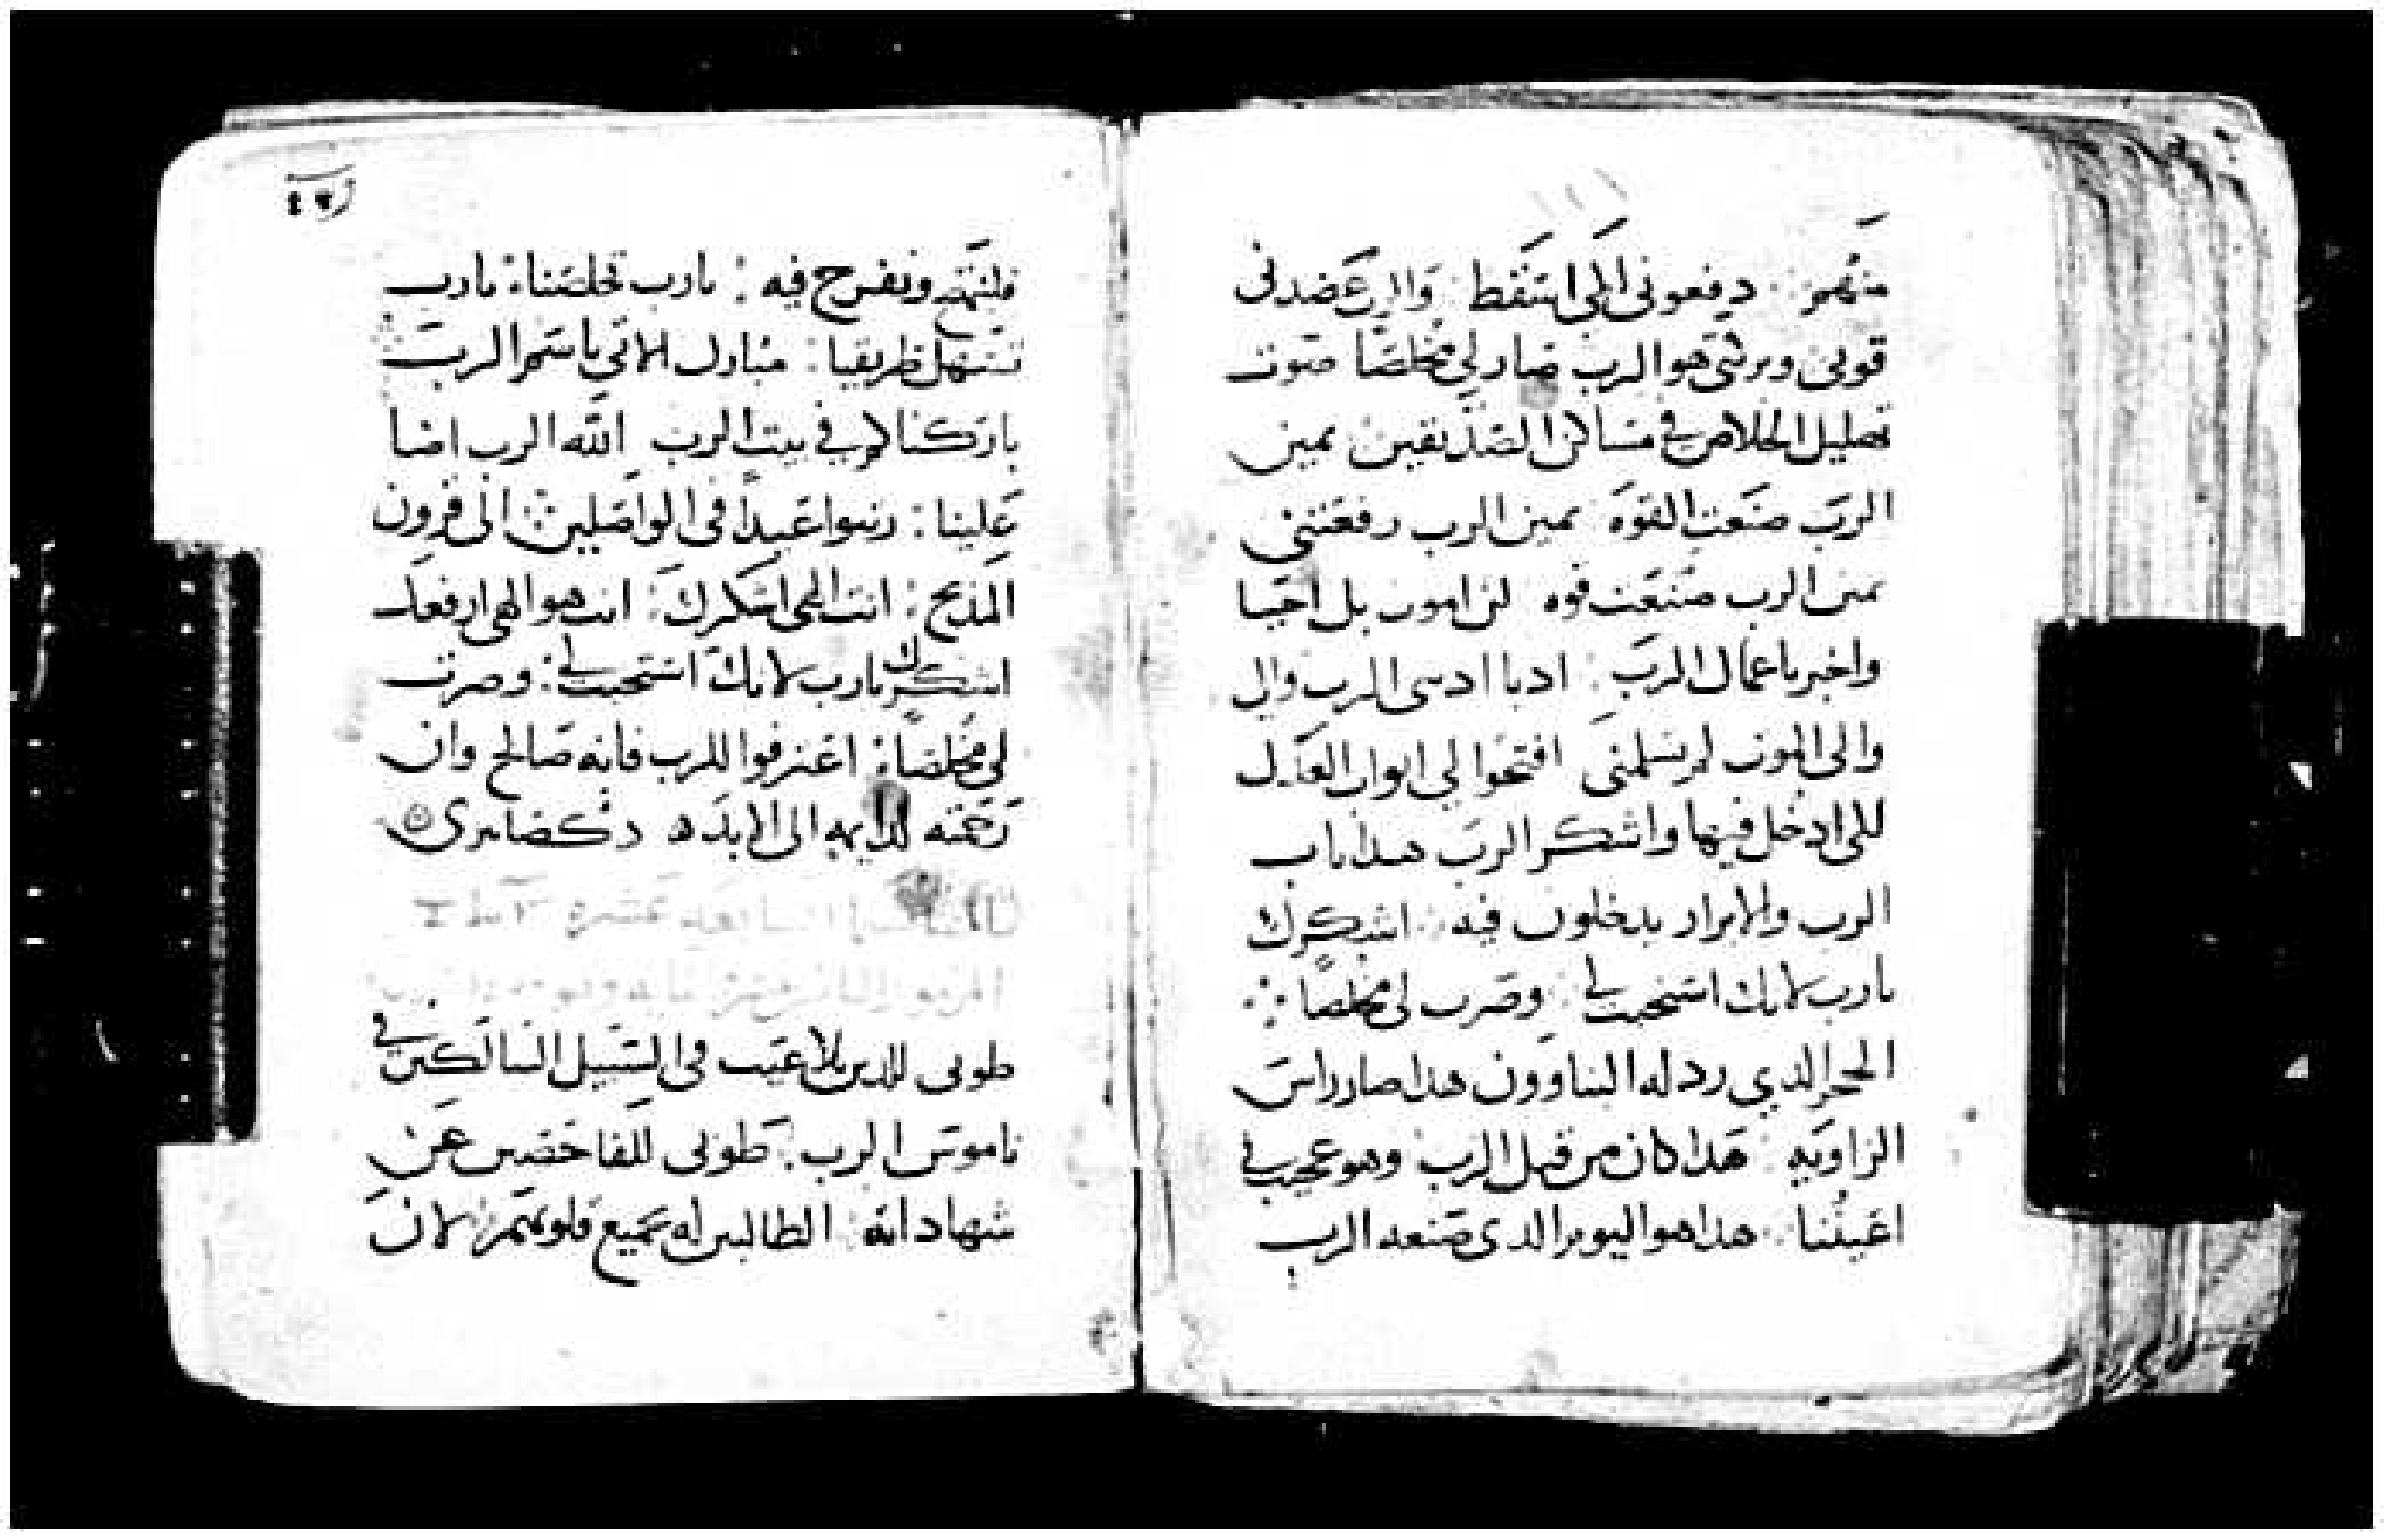 منهم دفعوني لكي اسقط والرب عضدني
قوتي وبرتي هو الرب صار لي مخلصا صوت
تهليل الخلاص في مساكن الصديقين يمين
الرب صنعت القوه يمين الرب رفعتني
يمين الرب صنعت قوه لن اموت بل احيا
واخبر باعمال الرب ادبا ادبني الرب والي
والى الموت لم يسلمني افتحوا لي ابواب العدل
لكي ادخل فيها واشكر الرب هذا باب
الرب والابرار يدخلون فيه اشكرك
يارب لانك استجبت لي وصرت لي مخلصا
الحجر الدي ردله البناوون هذا صار راس
الزاويه هذا كان من قبل الرب وهو عجيب في
اعيننا هذا هو اليوم الدي صنعه الرب
فلنبتهج ونفرح فيه يارب تخلصنا يارب
تسهل طريقنا مبارك الاتي باسم الرب
باركناكم في بيت الرب الله الرب اضا
علينا رتبوا عيداً في الواصلين الى قرون
المذبح انت الهي اشكرك انت هو الهي ارفعك
اشكرك يارب لانك استجبت لي وصرت
لي مخلصاً اعترفوا للرب فانه صالح وان
رحمته الى الابد دكصاصرى
طوبى للدين بلا عيب في السبيل السالكين في
ناموس الرب طوبى للفاحصين عن
شهاداته الطالبين له بجميع قلوبهم لان